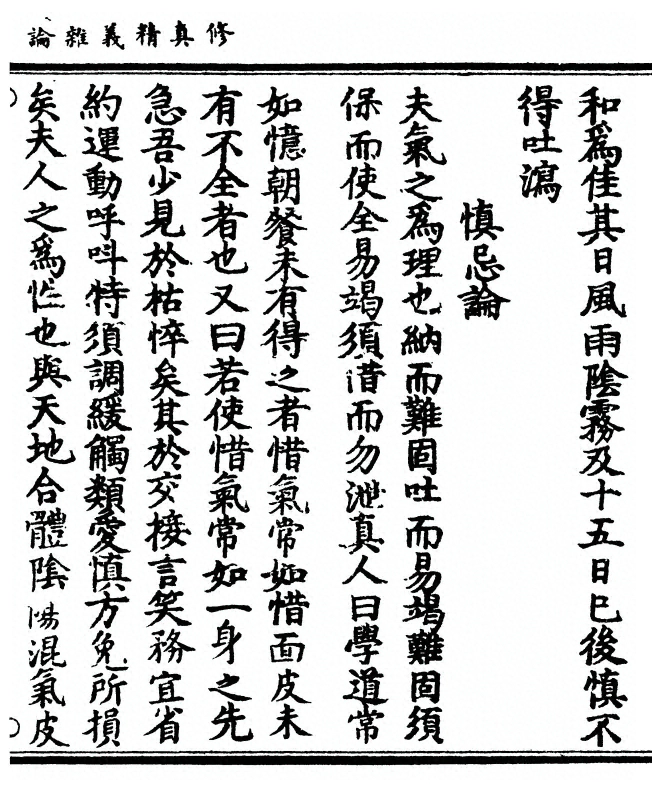 修真精義雜論
和爲佳其日風雨陰霧及十五日已後慎不
得吐瀉
慎忌論
夫氣之爲理也納而難固吐而易竭難固須
保而使全易竭須惜而勿泄真人曰學道常
如憶朝餐未有得之者惜氣常如惜面皮未
有不全者也又曰若使惜氣常如一身之先
急吾少見於枯悴矣其於交接言笑務宜省
約運動呼叫特須調緩觸類愛慎方免所損
矣夫人之爲性也與天地合體陰陽混氣皮